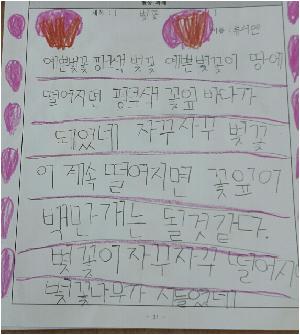 제목 : 벚꽃
이름 : 류서연
예쁜벚꽃 핑크색 벚꽃 예쁜벚꽃이 땅에
떨어지면 핑크색 꽃잎 바다가
되었네 자꾸자꾸 벚꽃
이 계속 떨어지면 꽃잎이
백만개는 될것같다.
벚꽃이 자꾸자꾸 떨어져
벚꽃나무가 시들었네